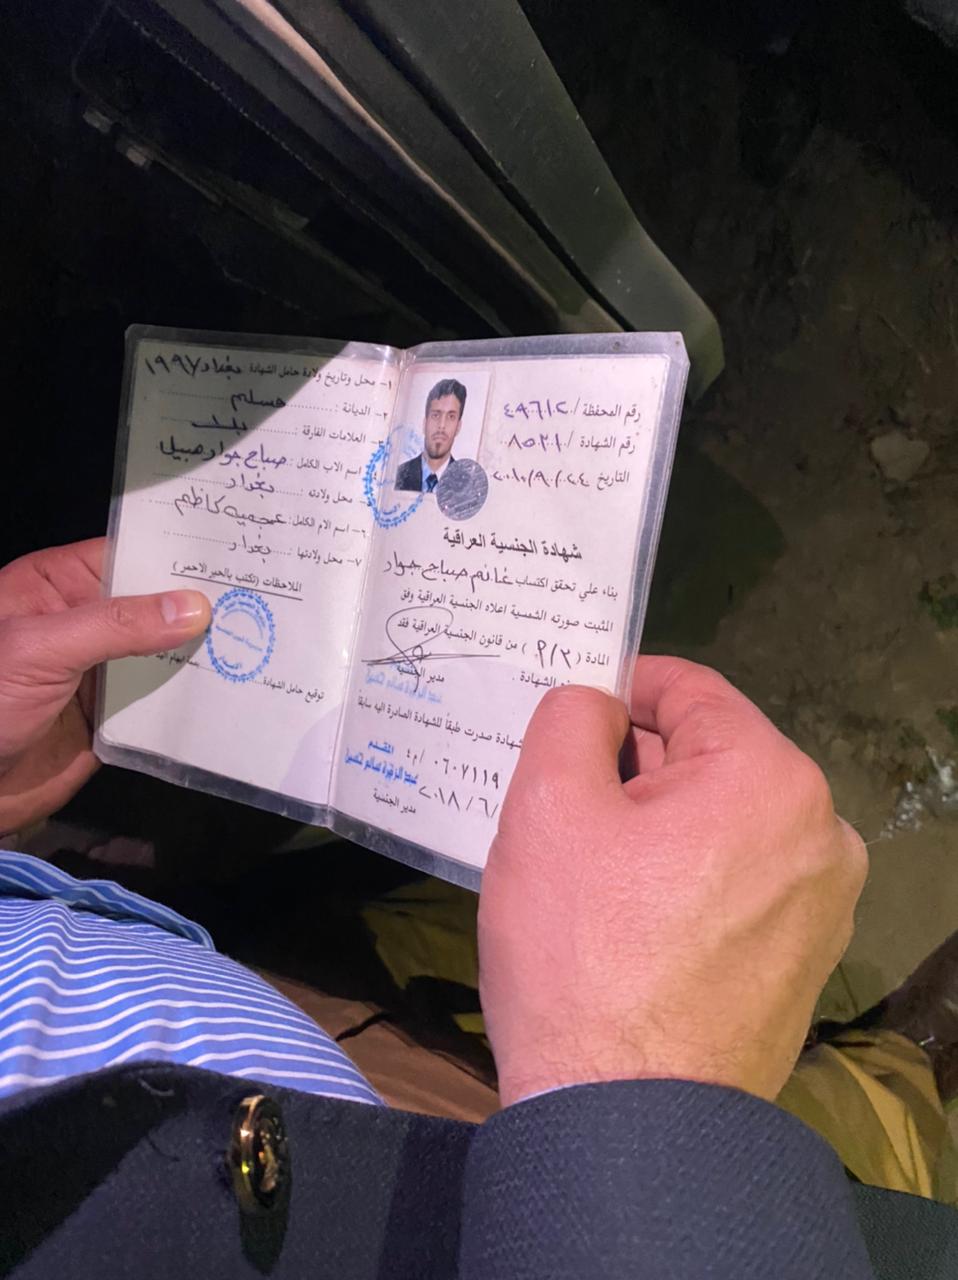 رقم المحفظة / ٤٩٦١٢
رقم الشهادة / ٨٥٢١
التاريخ ٢٠١٠/٩/٢٤
شهادة الجنسية العراقية
بناء علي تحقق اكتساب غانم صباح جواد
المثبت صورته الشمسية اعلاه الجنسية العراقية وفق
المادة ( ٩/٢ ) من قانون الجنسية العراقية فقد
الشهادة .
مدير الجنسية
شهادة صدرت طبقاً للشهادة الصادرة اليه سابقاً
٠٦٠٧١١٩ / م٤
المقدم
٢٠١٨/٦/
مدير الجنسية
١– محل وتاريخ ولادة حامل الشهادة بغداد ١٩٩٧
٢– الديانة : مسلم
العلامات الفارقة :
اسم الاب الكامل : صباح جواد
محل ولادته : بغداد
٦– اسم الام الكامل : كاظم
٧– محل ولادتها : بغداد
الملاحظات (تكتب بالحبر الاحمر)
بصمة ابهام
توقيع حامل الشهادة